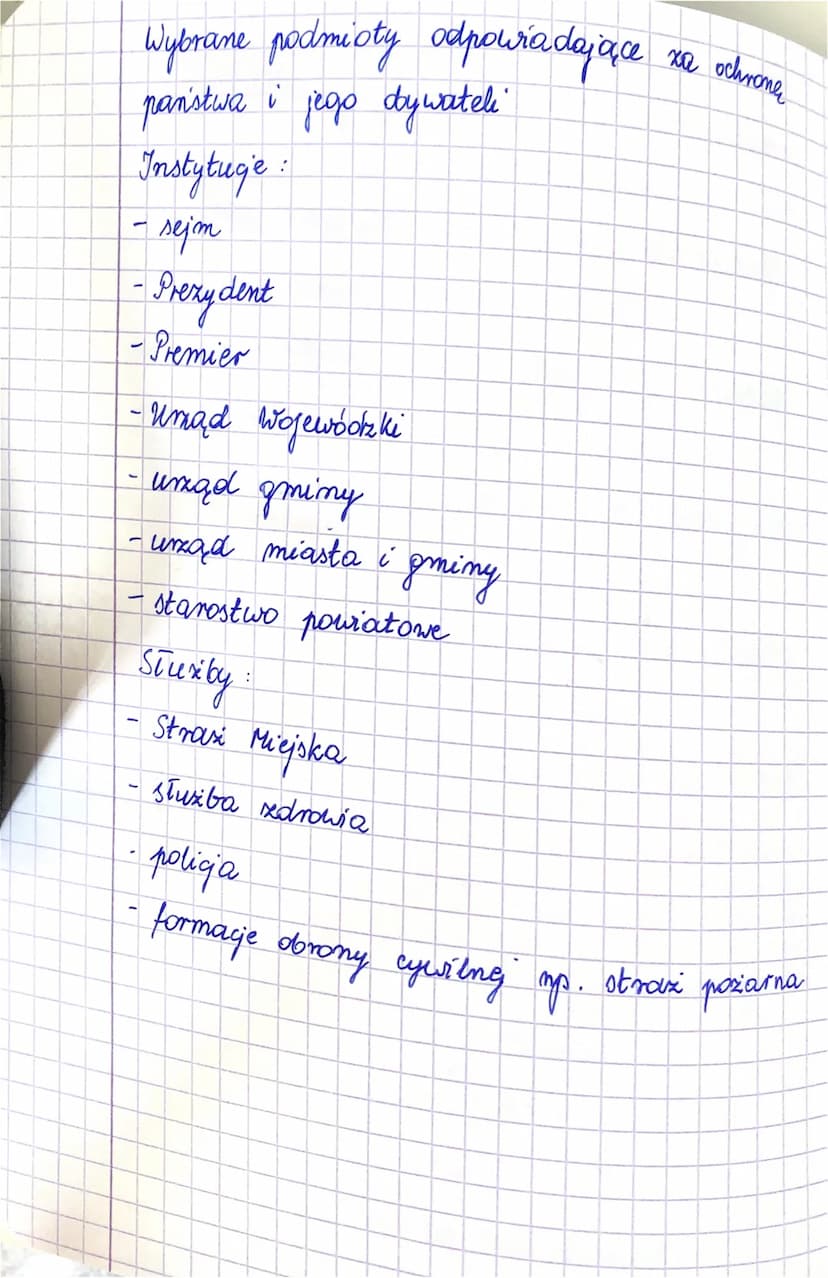 Wybrane podmioty odpowiadające za ochronę
państwa i jego obywateli
Instytucje :
- sejm
- Prezydent
- Premier
- Urząd Wojewódzki
- urząd gminy
- urząd miasta i gminy
- starostwo powiatowe
Służby :
- Straż Miejska
- służba zdrowia
- policja
- formacje obrony cywilnej np. straż pożarna